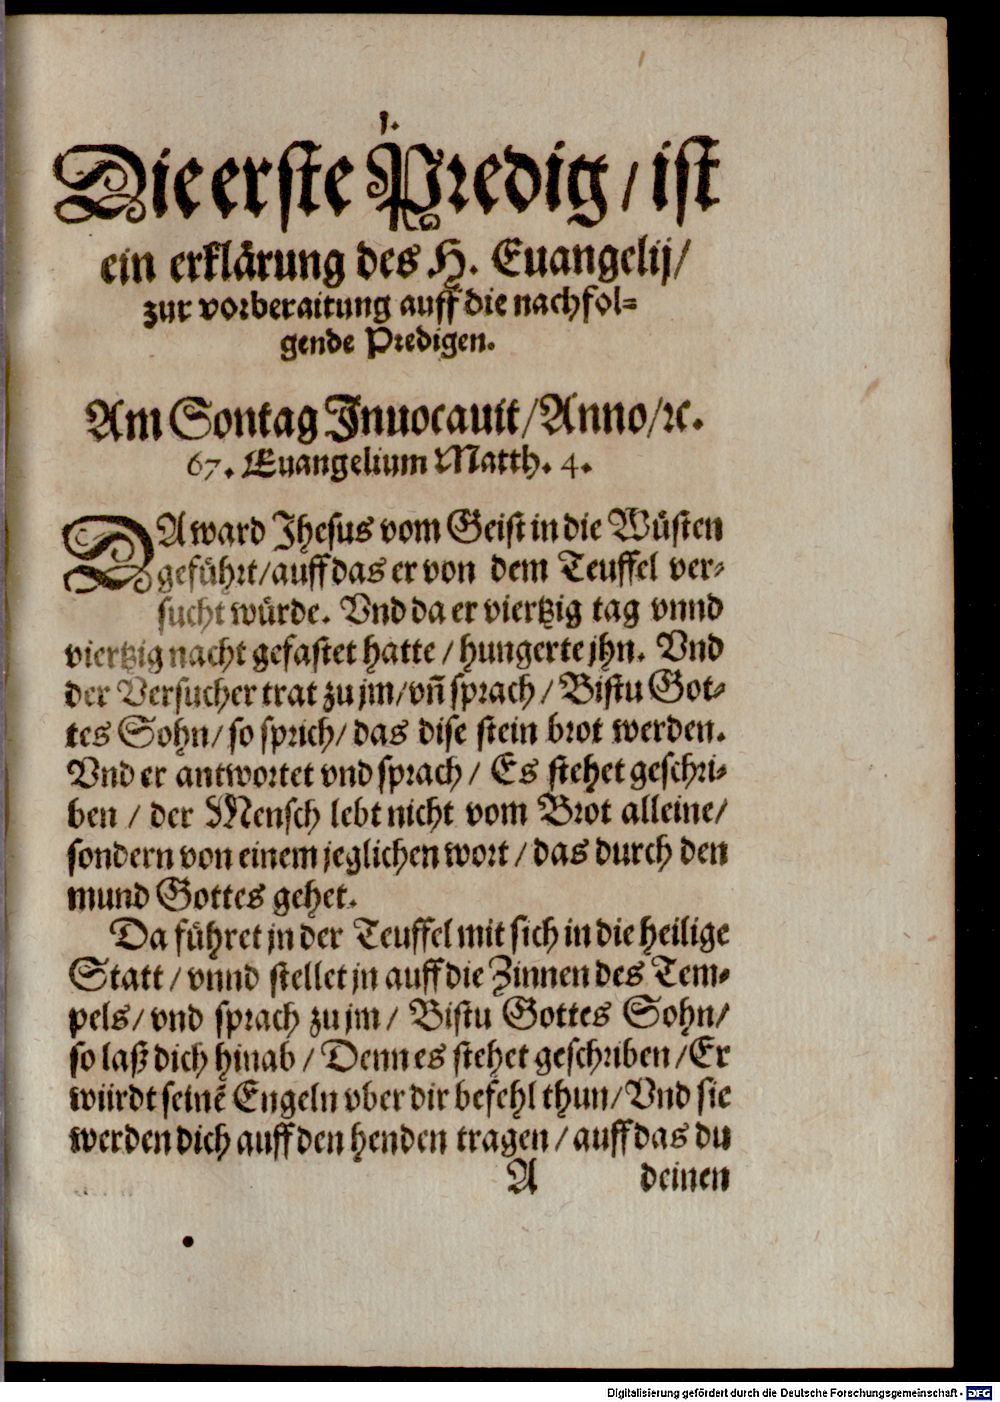 1.
Die erste Predig / ist
ein erklärung des H. Euangelij /
zur vorberaitung auff die nachfol⸗
gende Predigen.
Am Sontag Inuocauit / Anno / ꝛc.
67. Euangelium Matth. 4.
DA ward Jhesus vom Geist in die Wüsten
geführt / auff das er von dem Teuffel ver⸗
sucht würde. Vnd da er viertzig tag vnnd
viertzig nacht gefastet hatte / hungerte jhn. Vnd
der Versucher trat zu jm / vn̄ sprach / Bistu Got⸗
tes Sohn / so sprich / das dise stein brot werden.
Vnd er antwortet vnd sprach / Es stehet geschri⸗
ben / der Mensch lebt nicht vom Brot alleine /
sondern von einem jeglichen wort / das durch den
mund Gottes gehet.
Da führet jn der Teuffel mit sich in die heilige
Statt / vnnd stellet jn auff die Zinnen des Tem⸗
pels / vnd sprach zu jm / Bistu Gottes Sohn /
so laß dich hinab / Denn es stehet geschriben / Er
würdt seinē Engeln vber dir befehl thun / Vnd sie
werden dich auff den henden tragen / auff das du
A deinen
Digitalisierung gefördert durch die Deutsche Forschungsgemeinschaft - DFG